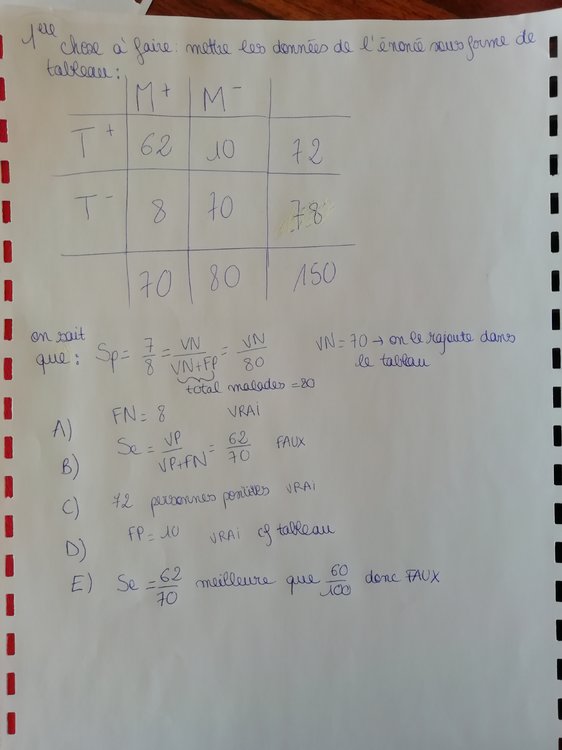 1ère chose à faire : mettre les données de l'énoncé sous forme de
tableau :
M+ M-
T+ 62 10 72
T- 8 70 78
70 80 150
on sait
que : Sp = 7/8 = VN/(VN+FP) = VN/80 VN = 70 → on le rajoute dans
le tableau
total malades = 80
A) FN = 8 VRAI
B) Se = VP/(VP+FN) = 62/70 FAUX
C) 72 personnes positives VRAI
D) FP = 10 VRAI cf tableau
E) Se = 62/70 meilleure que 60/100 donc FAUX